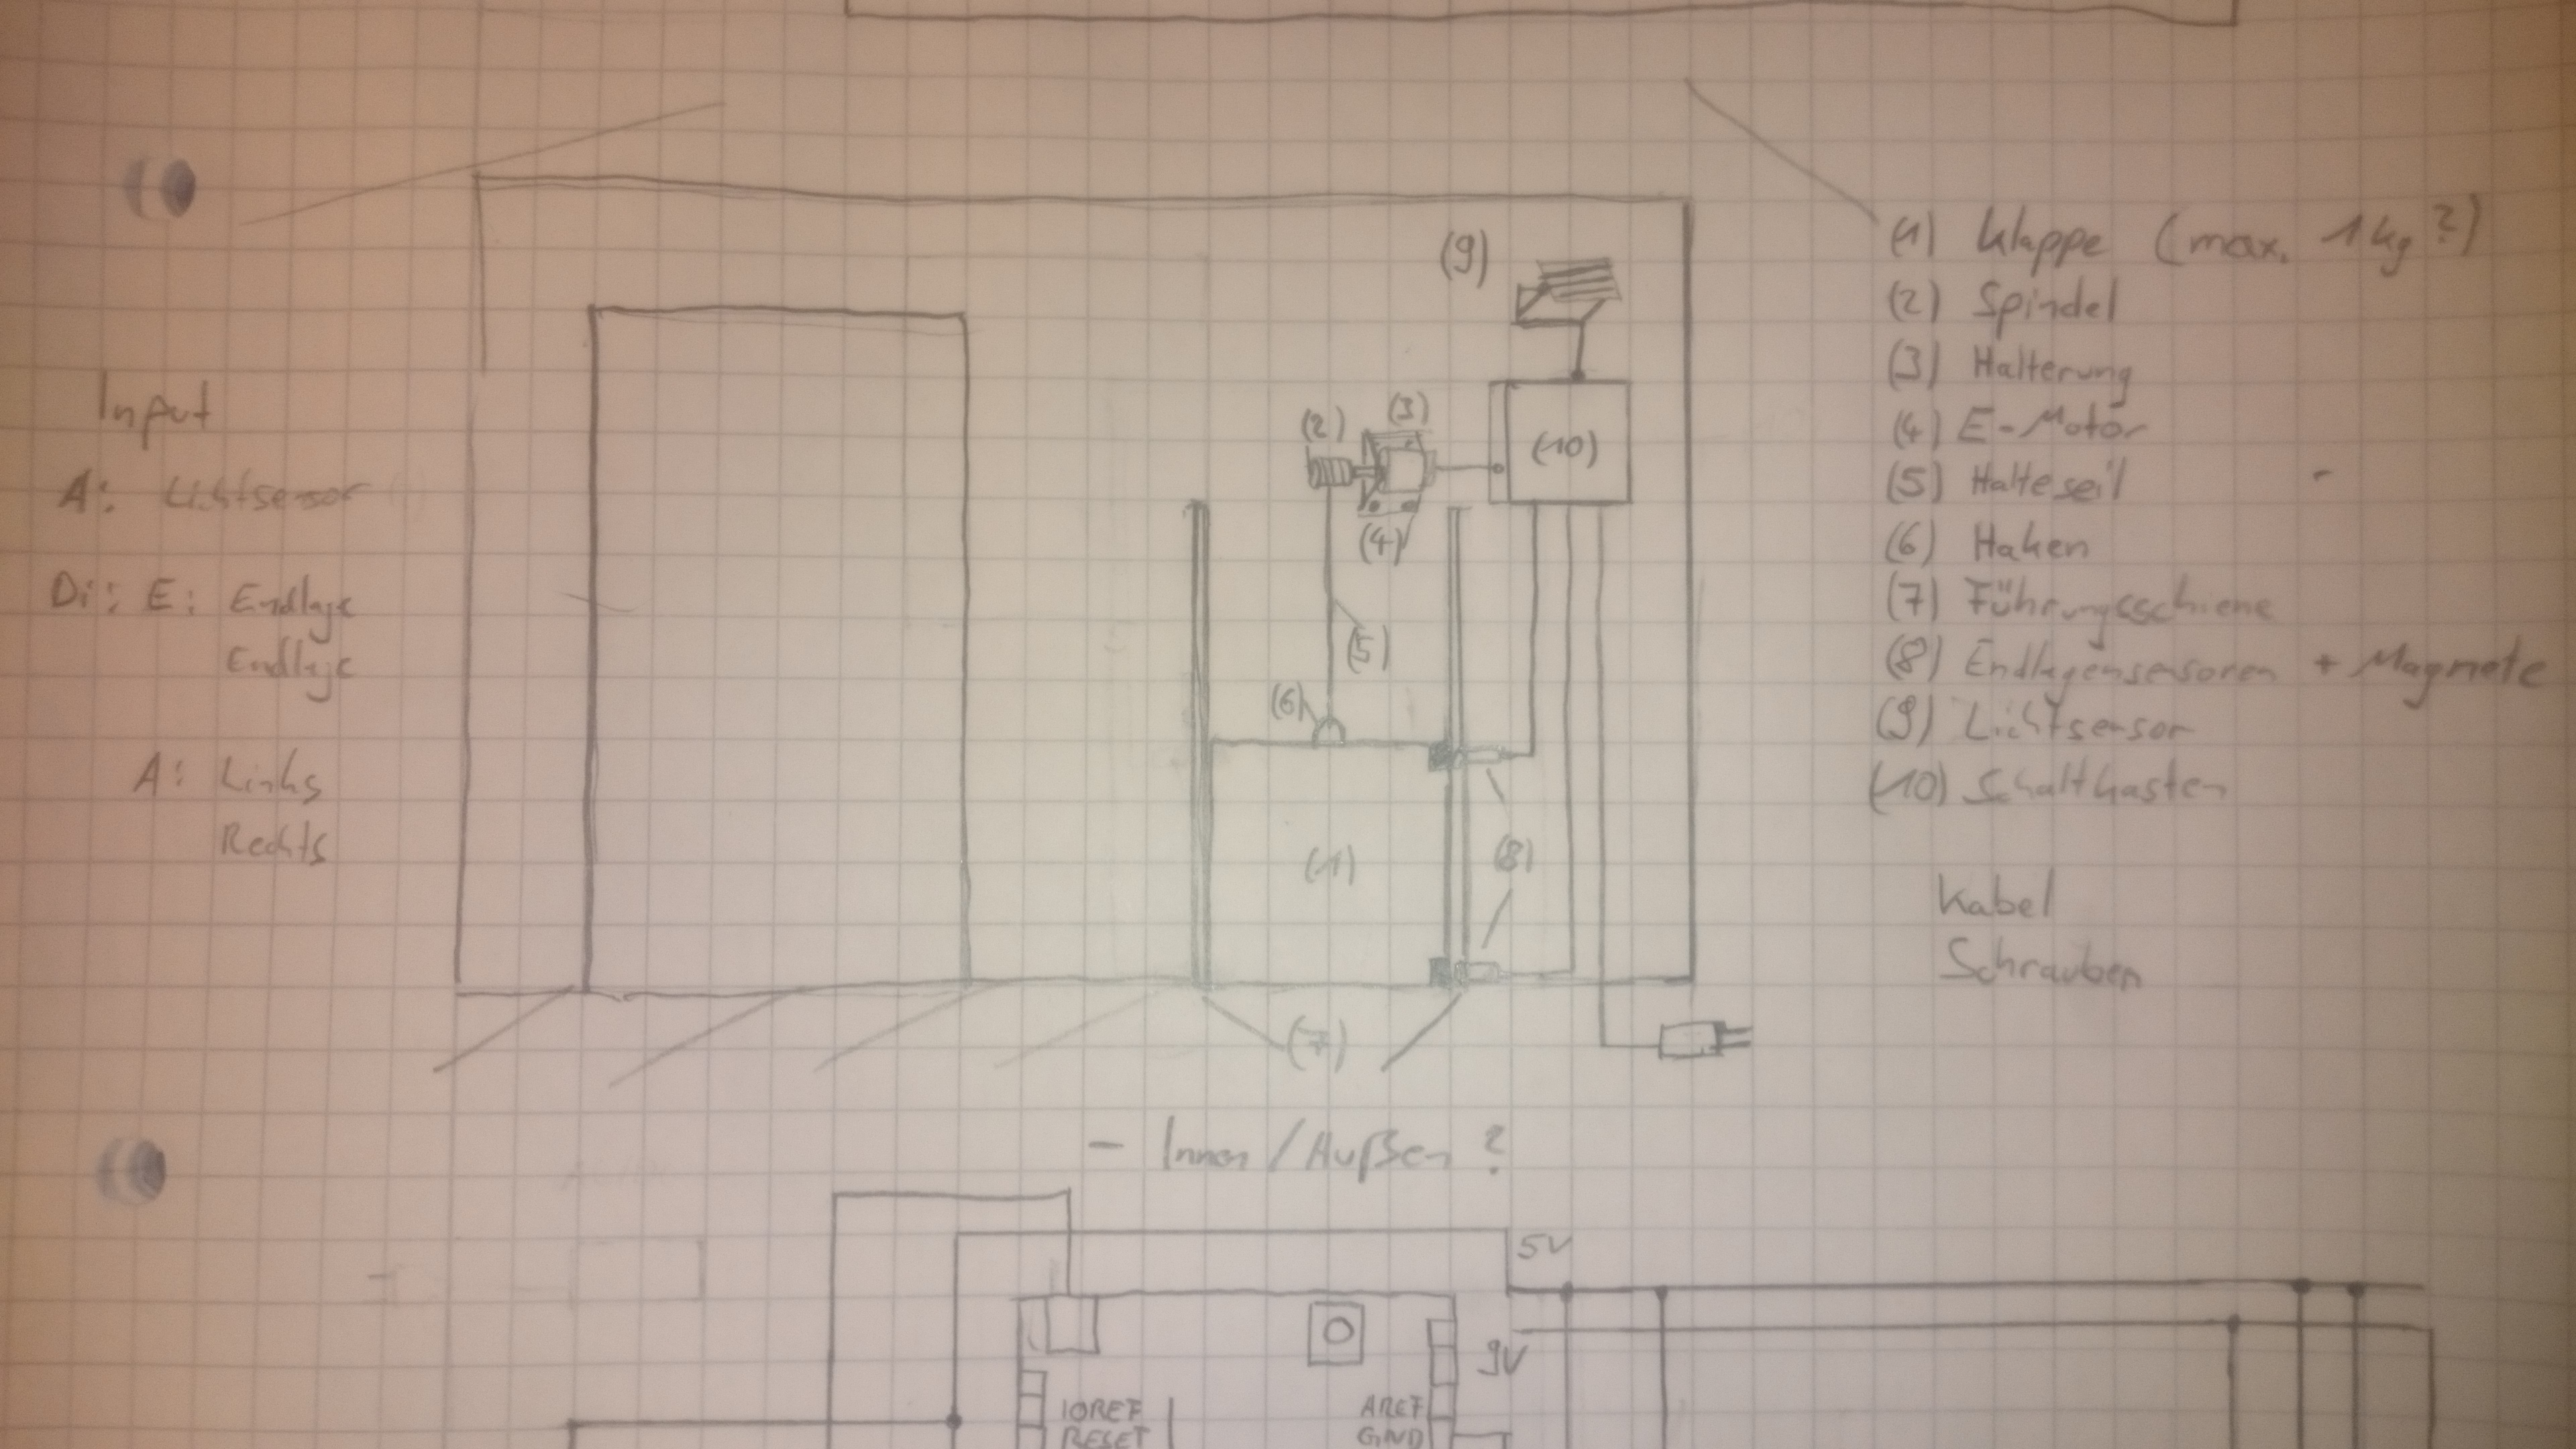 Input
A: Lichtsensor
Di: E: Endlage
Endlage
A: Links
Rechts
(9)
(2)
(3)
(10)
(4)
(5)
(6)
(1)
(8)
(7)
(1) Klappe (max. 1kg?)
(2) Spindel
(3) Halterung
(4) E-Motor
(5) Halteseil
(6) Haken
(7) Führungsschiene
(8) Endlagensensoren + Magnete
(9) Lichtsensor
(10) Schaltkasten
Kabel
Schrauben
- Innen/Außen?
5V
9V
IOREF
RESET
AREF
GND